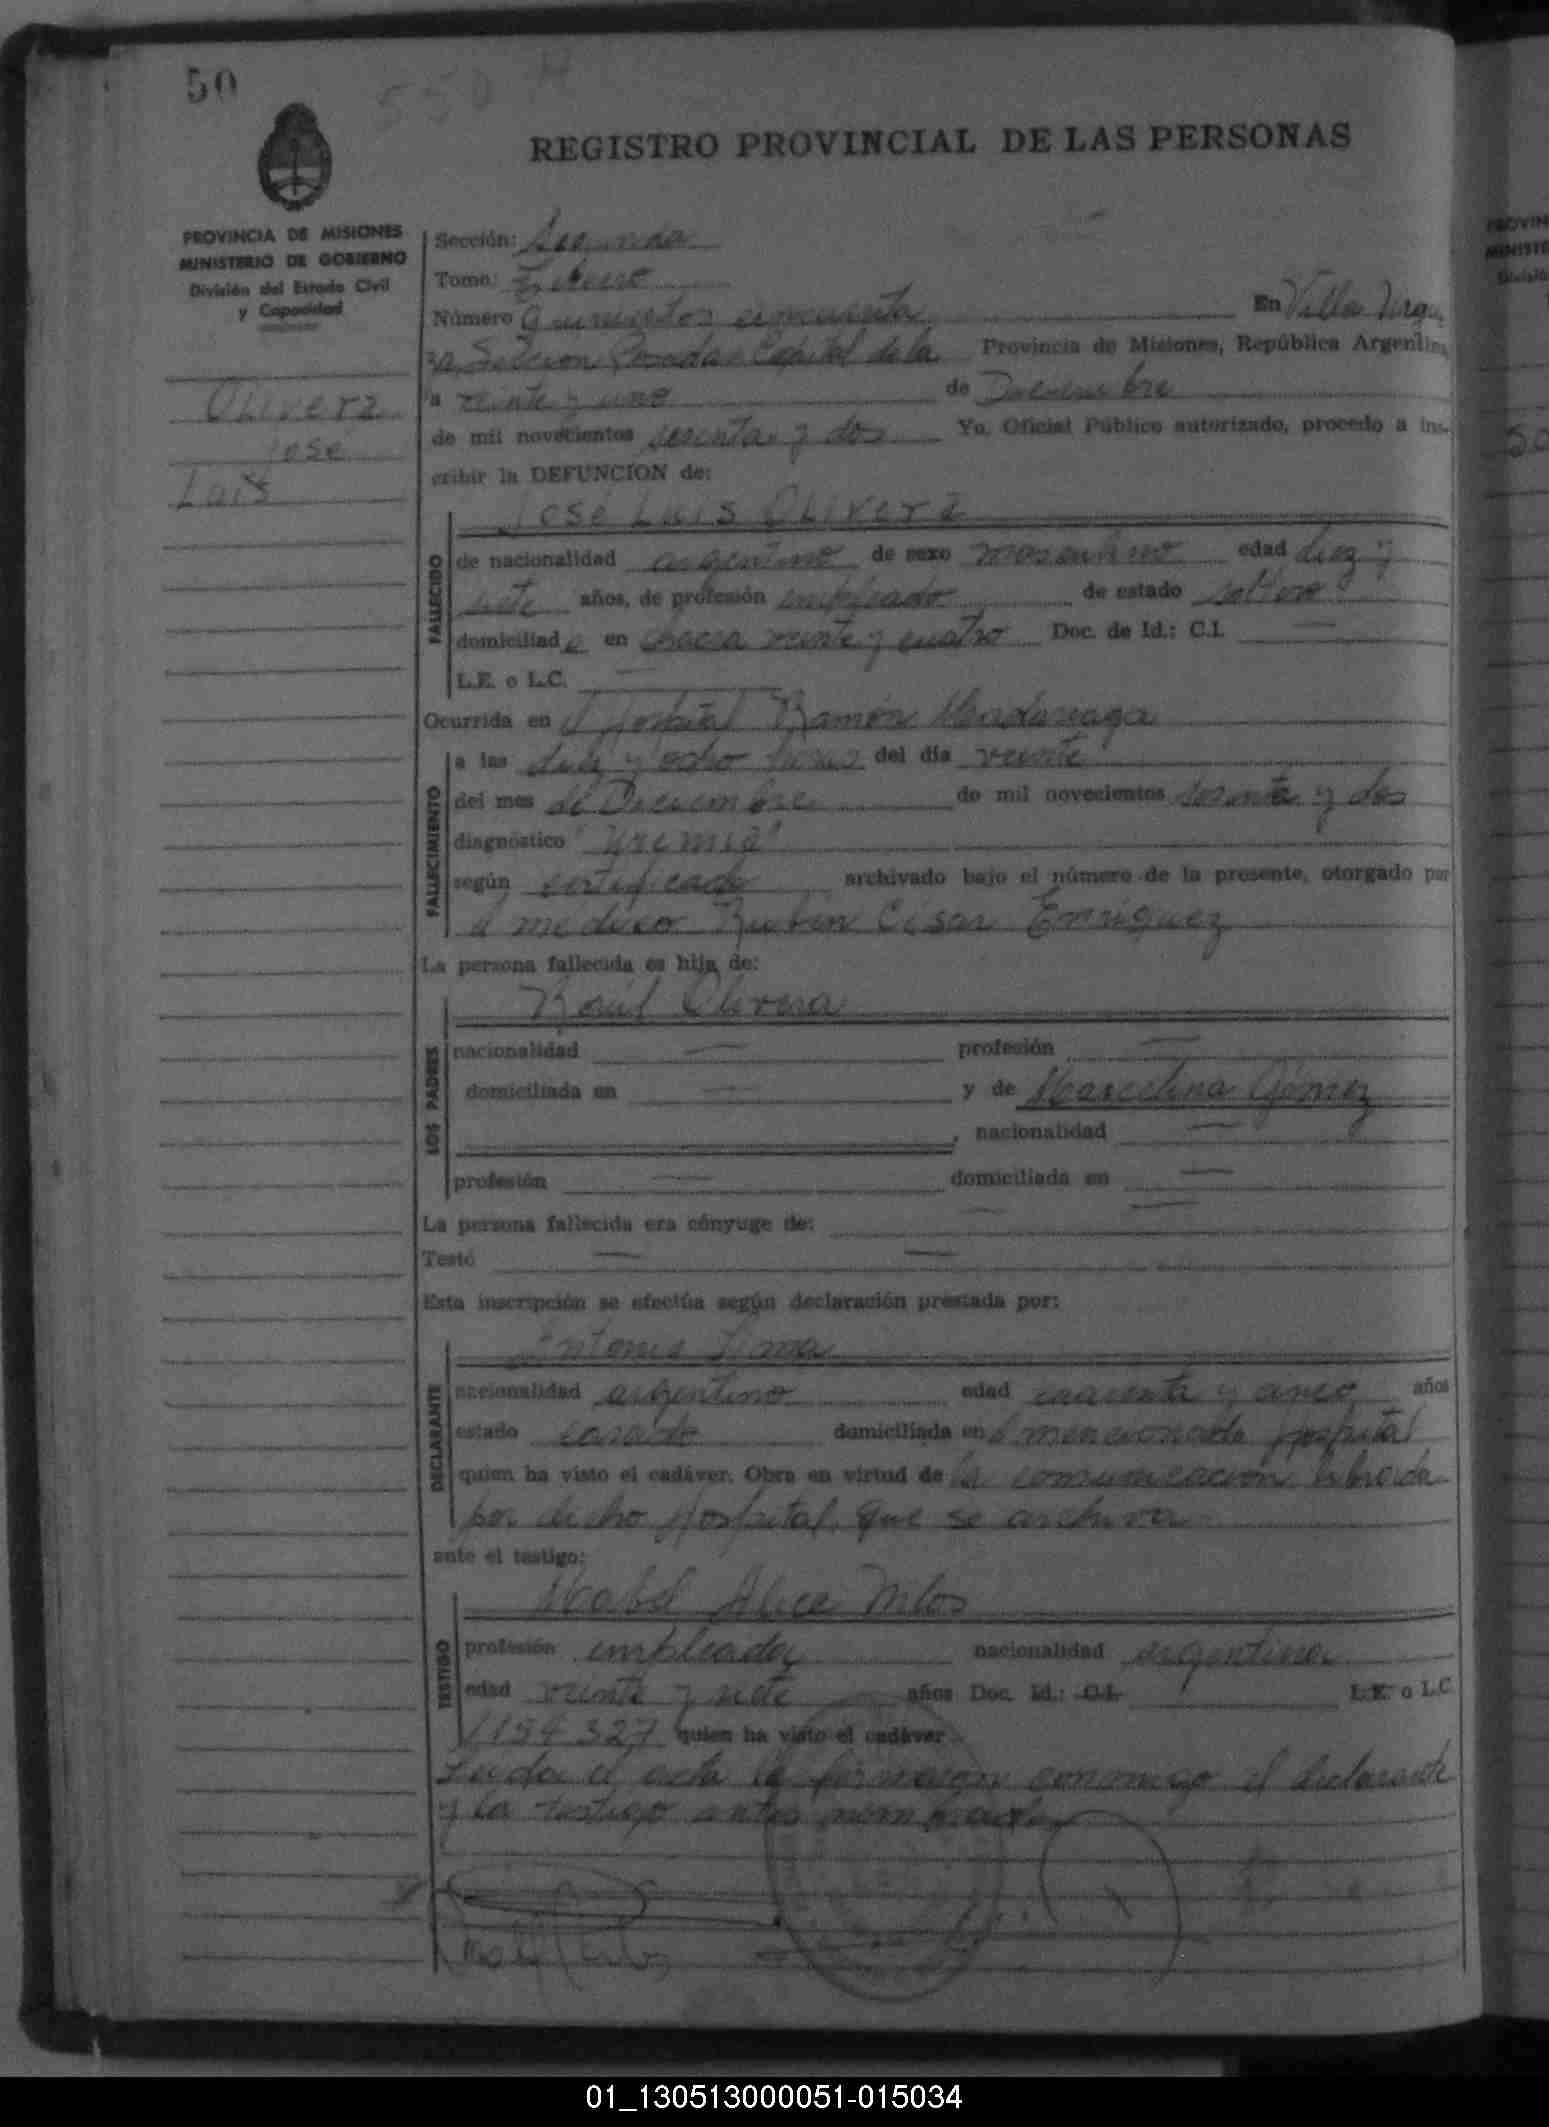 50
550
REGISTRO PROVINCIAL DE LAS PERSONAS
PROVINCIA DE MISIONES
MINISTERIO DE GOBIERNO
División del Estado Civil
y Capacidad
Olivera
José
Luis
Sección: Segunda
Tomo:
Número Quinientos cincuenta En Villa Urqui
za, Posadas Capital de la Provincia de Misiones, República Argentina,
a veinte y uno de Diciembre
de mil novecientos sesenta y dos Yo, Oficial Público autorizado, procedo a ins-
cribir la DEFUNCION de:
José Luis Olivera
FALLECIDO
de nacionalidad argentino de sexo masculino edad diez y
siete años, de profesión empleado de estado soltero
domiciliado en chacra veinte y cuatro Doc. de Id.: C.I. —
L.E. o L.C. —
Ocurrida en el Hospital Ramón Madariaga
FALLECIMIENTO
a las diez y ocho horas del día veinte
del mes de Diciembre de mil novecientos sesenta y dos
diagnóstico "Uremia"
según certificado archivado bajo el número de la presente, otorgado por
el médico Rubén César Enríquez
La persona fallecida es hija de:
LOS PADRES
Raúl Olivera
nacionalidad — profesión —
domiciliada en — y de Marcelina Gómez
, nacionalidad —
profesión — domiciliada en —
La persona fallecida era cónyuge de: — —
Testó — —
Esta inscripción se efectúa según declaración prestada por:
DECLARANTE
Antonio Lima
nacionalidad argentino edad cuarenta y cinco años
estado casado domiciliada en el mencionado Hospital
quien ha visto el cadáver. Obra en virtud de la comunicación librada
por dicho Hospital, que se archiva
ante el testigo:
TESTIGO
Mabel Alice
profesión empleada nacionalidad argentina
edad veinte y siete años Doc. Id.: C.I. L.E. o L.C.
1194327 quien ha visto el cadáver
Leída el acta la firmaron conmigo el declarante
y la testigo antes nombrada
PROVIN
MINISTE
División
01_130513000051-015034